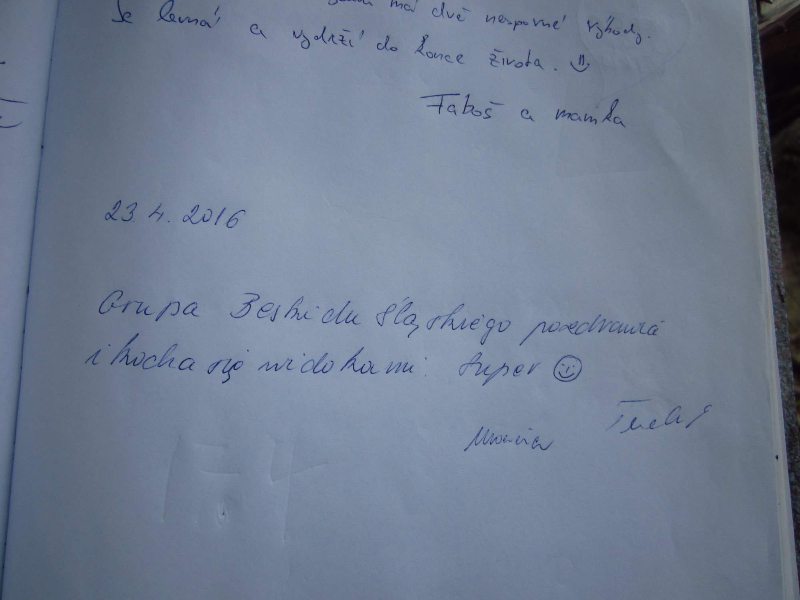 má dvě nesporné výhody.
Je levná a vydrží do konce života.
Faboš a mamka
23.4.2016
Grupa Beskidu Śląskiego pozdrawia
i kocha się widokami. Super